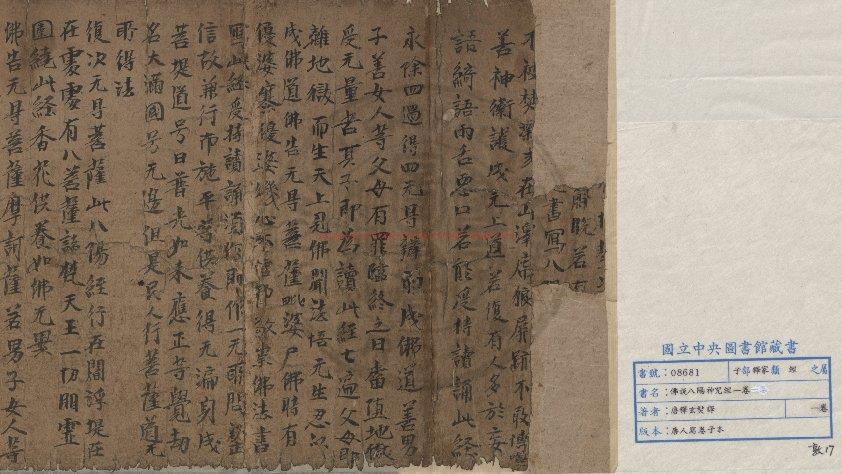 解脫若有
書寫八
不被焚漂或在山澤虎狼屏跡不敢
善神衛護成无上道若復有人多於妄
語綺語兩舌惡口若能受持讀誦此經
永除四過得四无导辯而成佛道善男
子善女人等父母有罪臨終之日當墮地獄
受无量苦其子即為讀此經七遍父母即
離地獄而生天上見佛聞法悟无生忍以
成佛道佛告无导菩薩毗婆尸佛時有
優婆塞優婆夷心不信邪敬崇佛法書
寫此經受持讀誦須作即作一无所問以正
信故兼行布施平等供養得无漏身成
菩提道号曰普光如来應正等覺劫
名大滿國号无邊但是人民行菩薩道无
所得法
復次无导菩薩此八陽經行在閻浮提在
在處處有八菩薩諸梵天王一切明靈
圍繞此經香花供養如佛无異
佛告无导菩薩摩訶薩若男子女人等
國立中央圖書館藏書
書號：08681 子部 釋家類 經 之屬
書名：佛說八陽神咒經一卷
著者：唐釋玄奘譯 一卷
版本：唐人寫卷子本
敦17